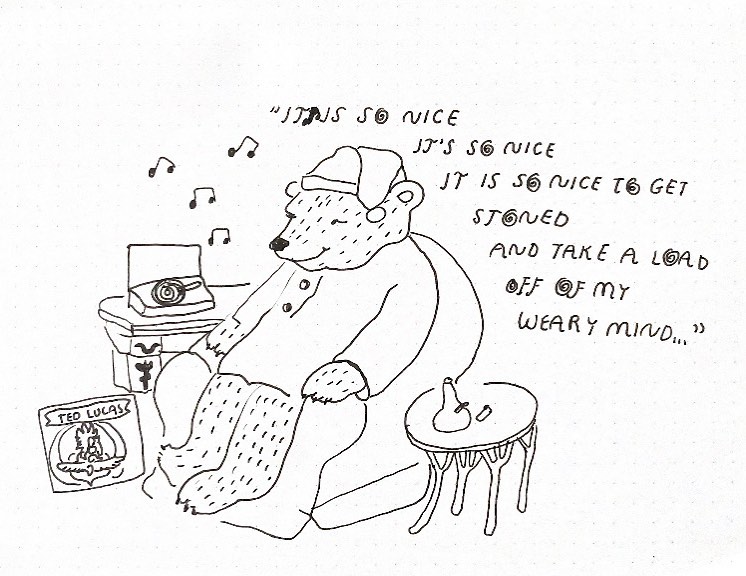 "IT IS SO NICE
IT'S SO NICE
IT IS SO NICE TO GET
STONED
AND TAKE A LOAD
OFF OF MY
WEARY MIND..."
TED LUCAS